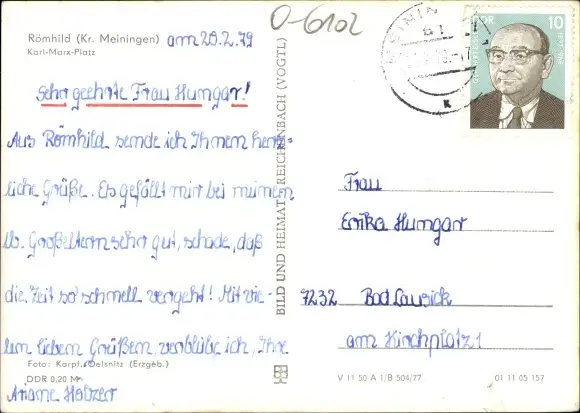 O-6102
Römhild (Kr. Meiningen) am 20.2.79
Karl-Marx-Platz
Sehr geehrte Frau Hungar!
Aus Römhild sende ich Ihnen herz-
liche Grüße. Es gefällt mir bei meinen
lb. Großeltern sehr gut, schade, daß
die Zeit so schnell vergeht! Mit vie-
len lieben Grüßen verbleibe ich, Ihre
Foto: Karpf, Oelsnitz (Erzgeb.)
DDR 0,20 M
Ariane
BILD UND HEIMAT REICHENBACH (VOGTL)
DDR 10
61
K
Frau
Erika Hungar
7232 Bad Lausick
am Kirchplatz 1
V 11 50 A 1/B 504/77 01 11 05 157